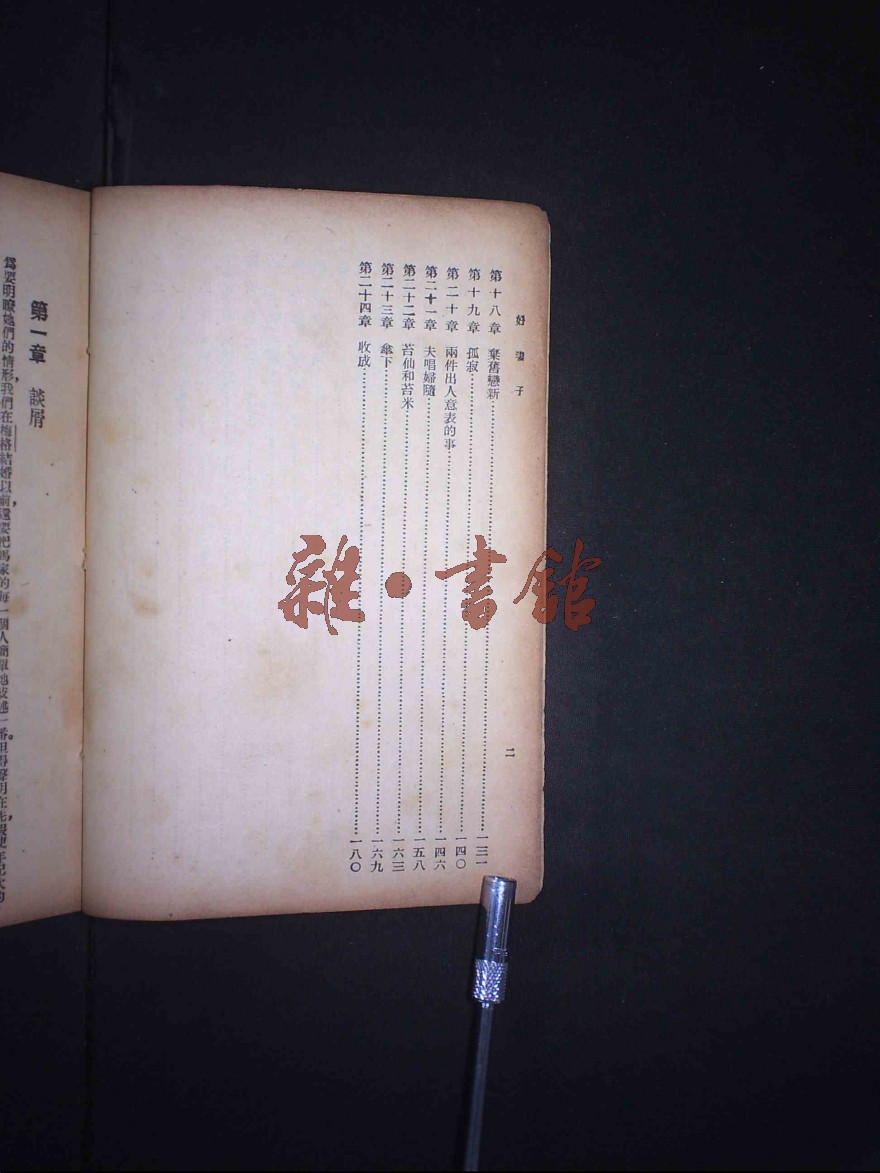 好妻子
二
第十八章 棄舊戀新 一三一
第十九章 孤寂 一四〇
第二十章 兩件出人意表的事 一四六
第二十一章 夫唱婦隨 一五八
第二十二章 苔仙和苔米 一六三
第二十三章 傘下 一六九
第二十四章 收成 一八〇
第一章 談屑
爲要明瞭她們的情形，我們在梅格結婚以前，還要把馬家的每一個人簡單地敍述一番。但得聲明在先，
雜·書館